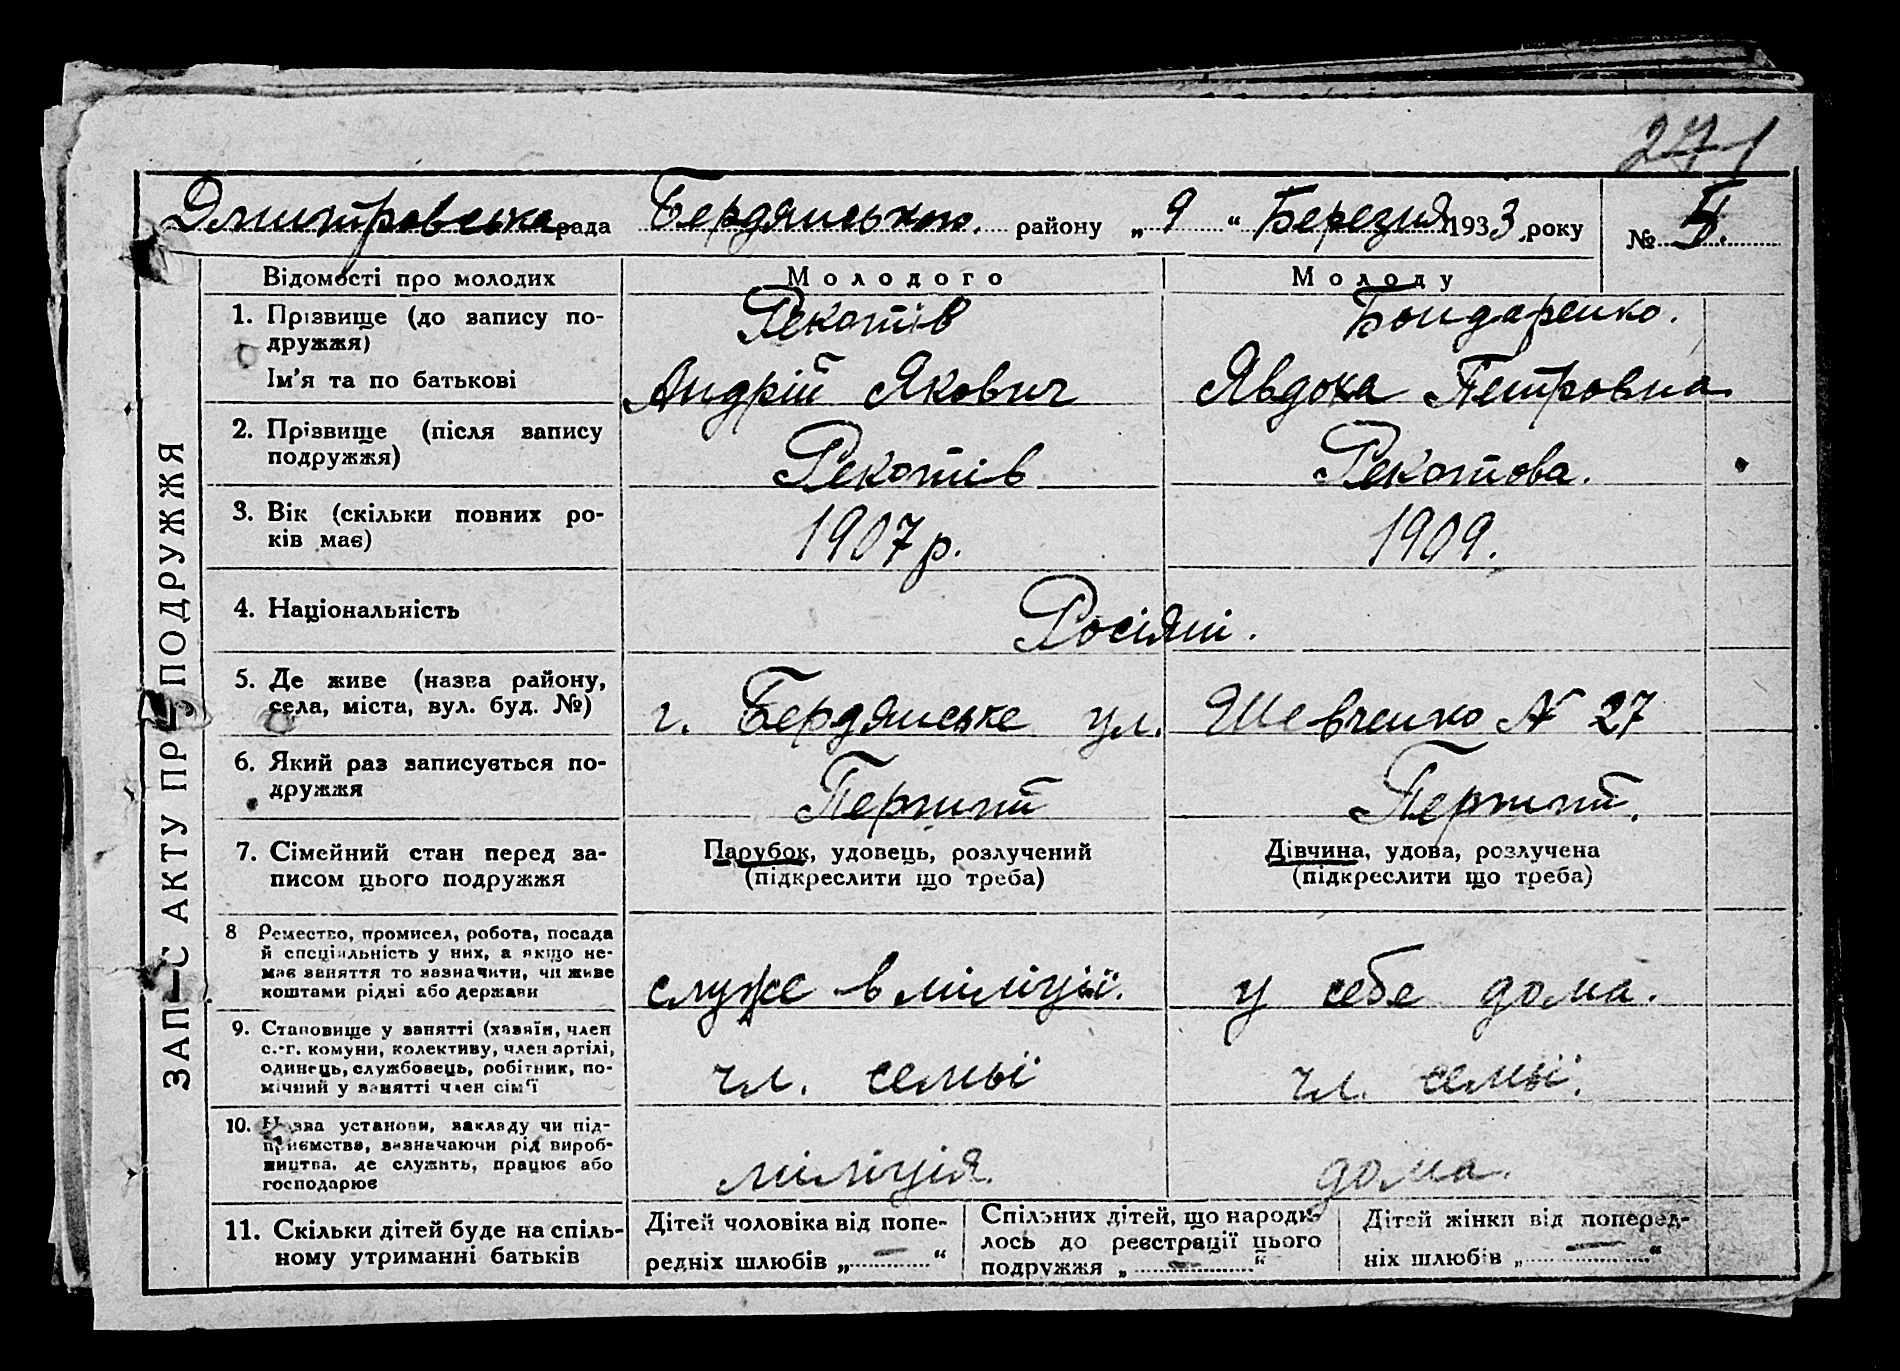 271
Дмитровська рада Бердянського району „9“ Березня 1933 року № 5.
ЗАПИС АКТУ ПРО ПОДРУЖЖЯ
Відомості про молодих Молодого Молоду
1. Прізвище (до запису по-
дружжя) Рекотів Бондаренко.
Ім'я та по батькові Андрій Якович Явдоха Петровна
2. Прізвище (після запису
подружжя) Рекотів Рекотова.
3. Вік (скільки повних ро-
ків має) 1907 р. 1909.
4. Національність Росіяні.
5. Де живе (назва району,
села, міста, вул. буд. №) г. Бердянське ул. Шевченко № 27
6. Який раз записується по-
дружжя Перший Перший.
7. Сімейний стан перед за-
писом цього подружжя
Парубок, удовець, розлучений
(підкреслити що треба)
Дівчина, удова, розлучена
(підкреслити що треба)
8 Ремество, промисел, робота, посада
й спеціяльність у них, а якщо не-
має заняття то зазначити, чи живе
коштами рідні або держави
служе в міліції. у себе дома.
9. Становище у занятті (хазяїн, член
с.-г. комуни, колективу, член артілі,
одинець, службовець, робітник, по-
мічний у занятті член сім'ї
чл. семьї чл. семьї.
10. Назва установи, закладу чи під-
приємства, зазначаючи рід вироб-
ництва, де служить, працює або
господарює
міліція. дома.
11. Скільки дітей буде на спіль-
ному утриманні батьків
Дітей чоловіка від попе-
редніх шлюбів „—“
Спільних дітей, що народи-
лось до реєстрації цього
подружжя „—“
Дітей жінки від поперед-
ніх шлюбів „—“